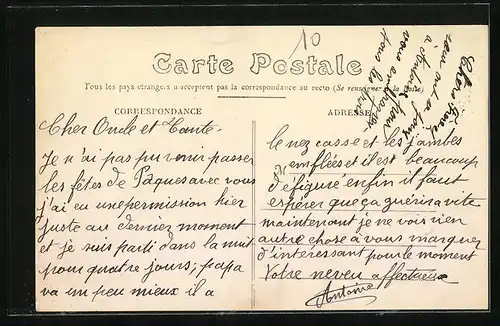 10
Carte Postale
Tous les pays étrangers n'acceptent pas la correspondance au recto (Se renseigner à la Poste)
CORRESPONDANCE
ADRESSE
Cher Oncle et Tante.
Je n'ai pas pu venir passer
les fêtes de Pâques avec vous
j'ai eu une permission hier
juste au dernier moment
et je suis parti dans la nuit
pour quatre jours; papa
va un peu mieux il a
le nez casse et les jambes
emflées et il est beaucoup
défiguré enfin il faut
espérer que ça guérira vite
maintenant je ne vois rien
autre chose à vous marquer
d'interessant pour le moment
Votre neveu affectueux
Antoine
vous embrasser
tous les trois